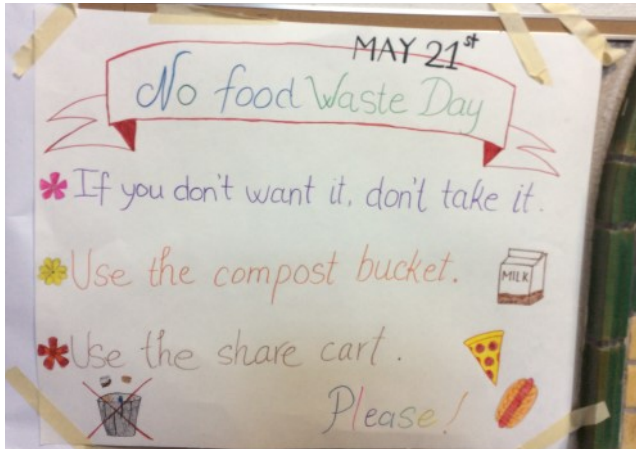 MAY 21st
No food Waste Day
If you don't want it, don't take it.
Use the compost bucket.
MILK
Use the share cart.
Please!